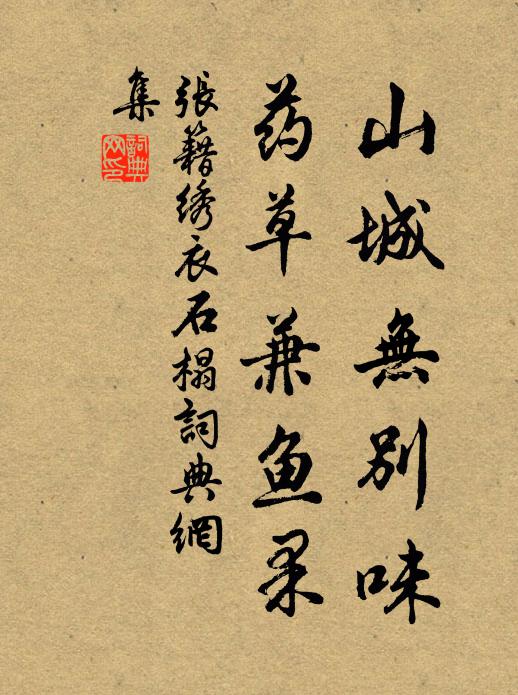 山城無別味
药草兼鱼果
張籍绣衣石榻詞典網
集
詞典
网印